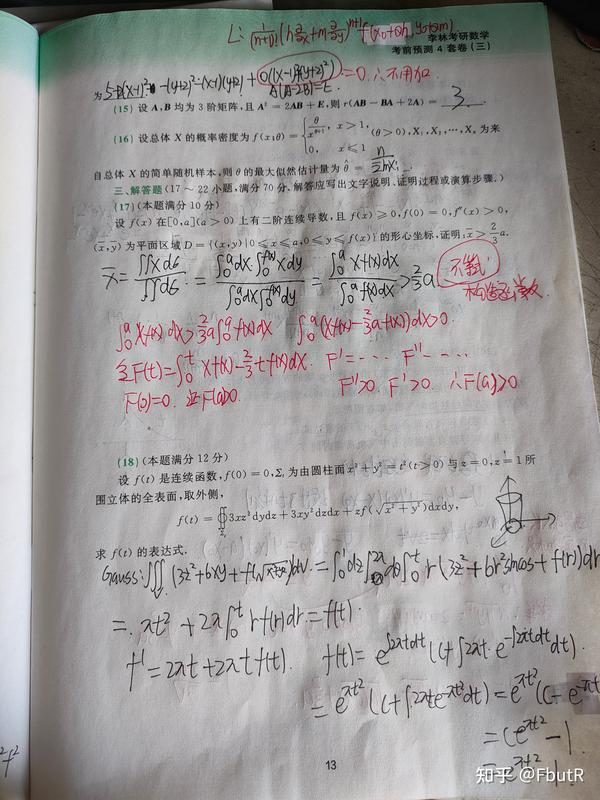 L: 1/(n+1)! (h ∂/∂x + m ∂/∂y)^{n+1} f(x₀+θh, y₀+θm)
李林考研数学
考前预测 4 套卷(三)
为 5+2(x-1)² -(y+2)²-(x-1)(y+2) + o((x-1)²+(y+2)²) =0 ∴不用加.
A(A-2B)=E.
(15) 设 A,B 均为 3 阶矩阵,且 A²=2AB+E,则 r(AB-BA+2A)= 3 .
(16) 设总体 X 的概率密度为 f(x;θ)={ θ/x^{θ+1}, x>1, (θ>0),X₁,X₂,…,Xₙ 为来
0, x≤1
自总体 X 的简单随机样本,则 θ 的最大似然估计量为 θ̂= n/ΣlnXᵢ .
三、解答题(17～22 小题,满分 70 分,解答应写出文字说明、证明过程或演算步骤.)
(17)(本题满分 10 分)
设 f(x) 在[0,a](a>0) 上有二阶连续导数,且 f(x)≥0,f(0)=0,f″(x)>0,
(x̄,ȳ) 为平面区域 D={(x,y)|0≤x≤a,0≤y≤f(x)} 的形心坐标,证明:x̄>2/3 a.
x̄ = ∬xdσ/∬dσ = ∫₀ᵃdx∫₀^{f(x)}xdy / ∫₀ᵃdx∫₀^{f(x)}dy = ∫₀ᵃxf(x)dx / ∫₀ᵃf(x)dx > 2/3 a
不等式
构造函数
∫₀ᵃxf(x)dx>2/3a∫₀ᵃf(x)dx ∫₀ᵃ(xf(x)-2/3af(x))dx>0.
令F(t)=∫₀ᵗxf(x)-2/3tf(x)dx. F'=… F''=…
F(0)=0. 证F(a)>0. F''>0. F'>0. ∴F(a)>0
(18)(本题满分 12 分)
设 f(t) 是连续函数,f(0)=0,Σ,为由圆柱面 x²+y²=t²(t>0) 与 z=0,z=1 所
围立体的全表面,取外侧,
f(t)=∯3xz²dydz+3xy²dzdx+zf(√(x²+y²))dxdy,
求 f(t) 的表达式.
Gauss: ∭(3z²+6xy+f(√(x²+y²)))dv = ∫₀¹dz∫₀^{2π}dθ∫₀ᵗ r(3z²+6r²sincos+f(r))dr
= πt²+2π∫₀ᵗrf(r)dr=f(t).
f'=2πt+2πtf(t). f(t)=e^{∫2πtdt}(C+∫2πt·e^{-∫2πtdt}dt).
=e^{πt²}(C+∫2πte^{-πt²}dt)=e^{πt²}(C-e^{-πt²}
=Ce^{πt²}-1
=e^{πt²}-1.
13
知乎 @FbutR